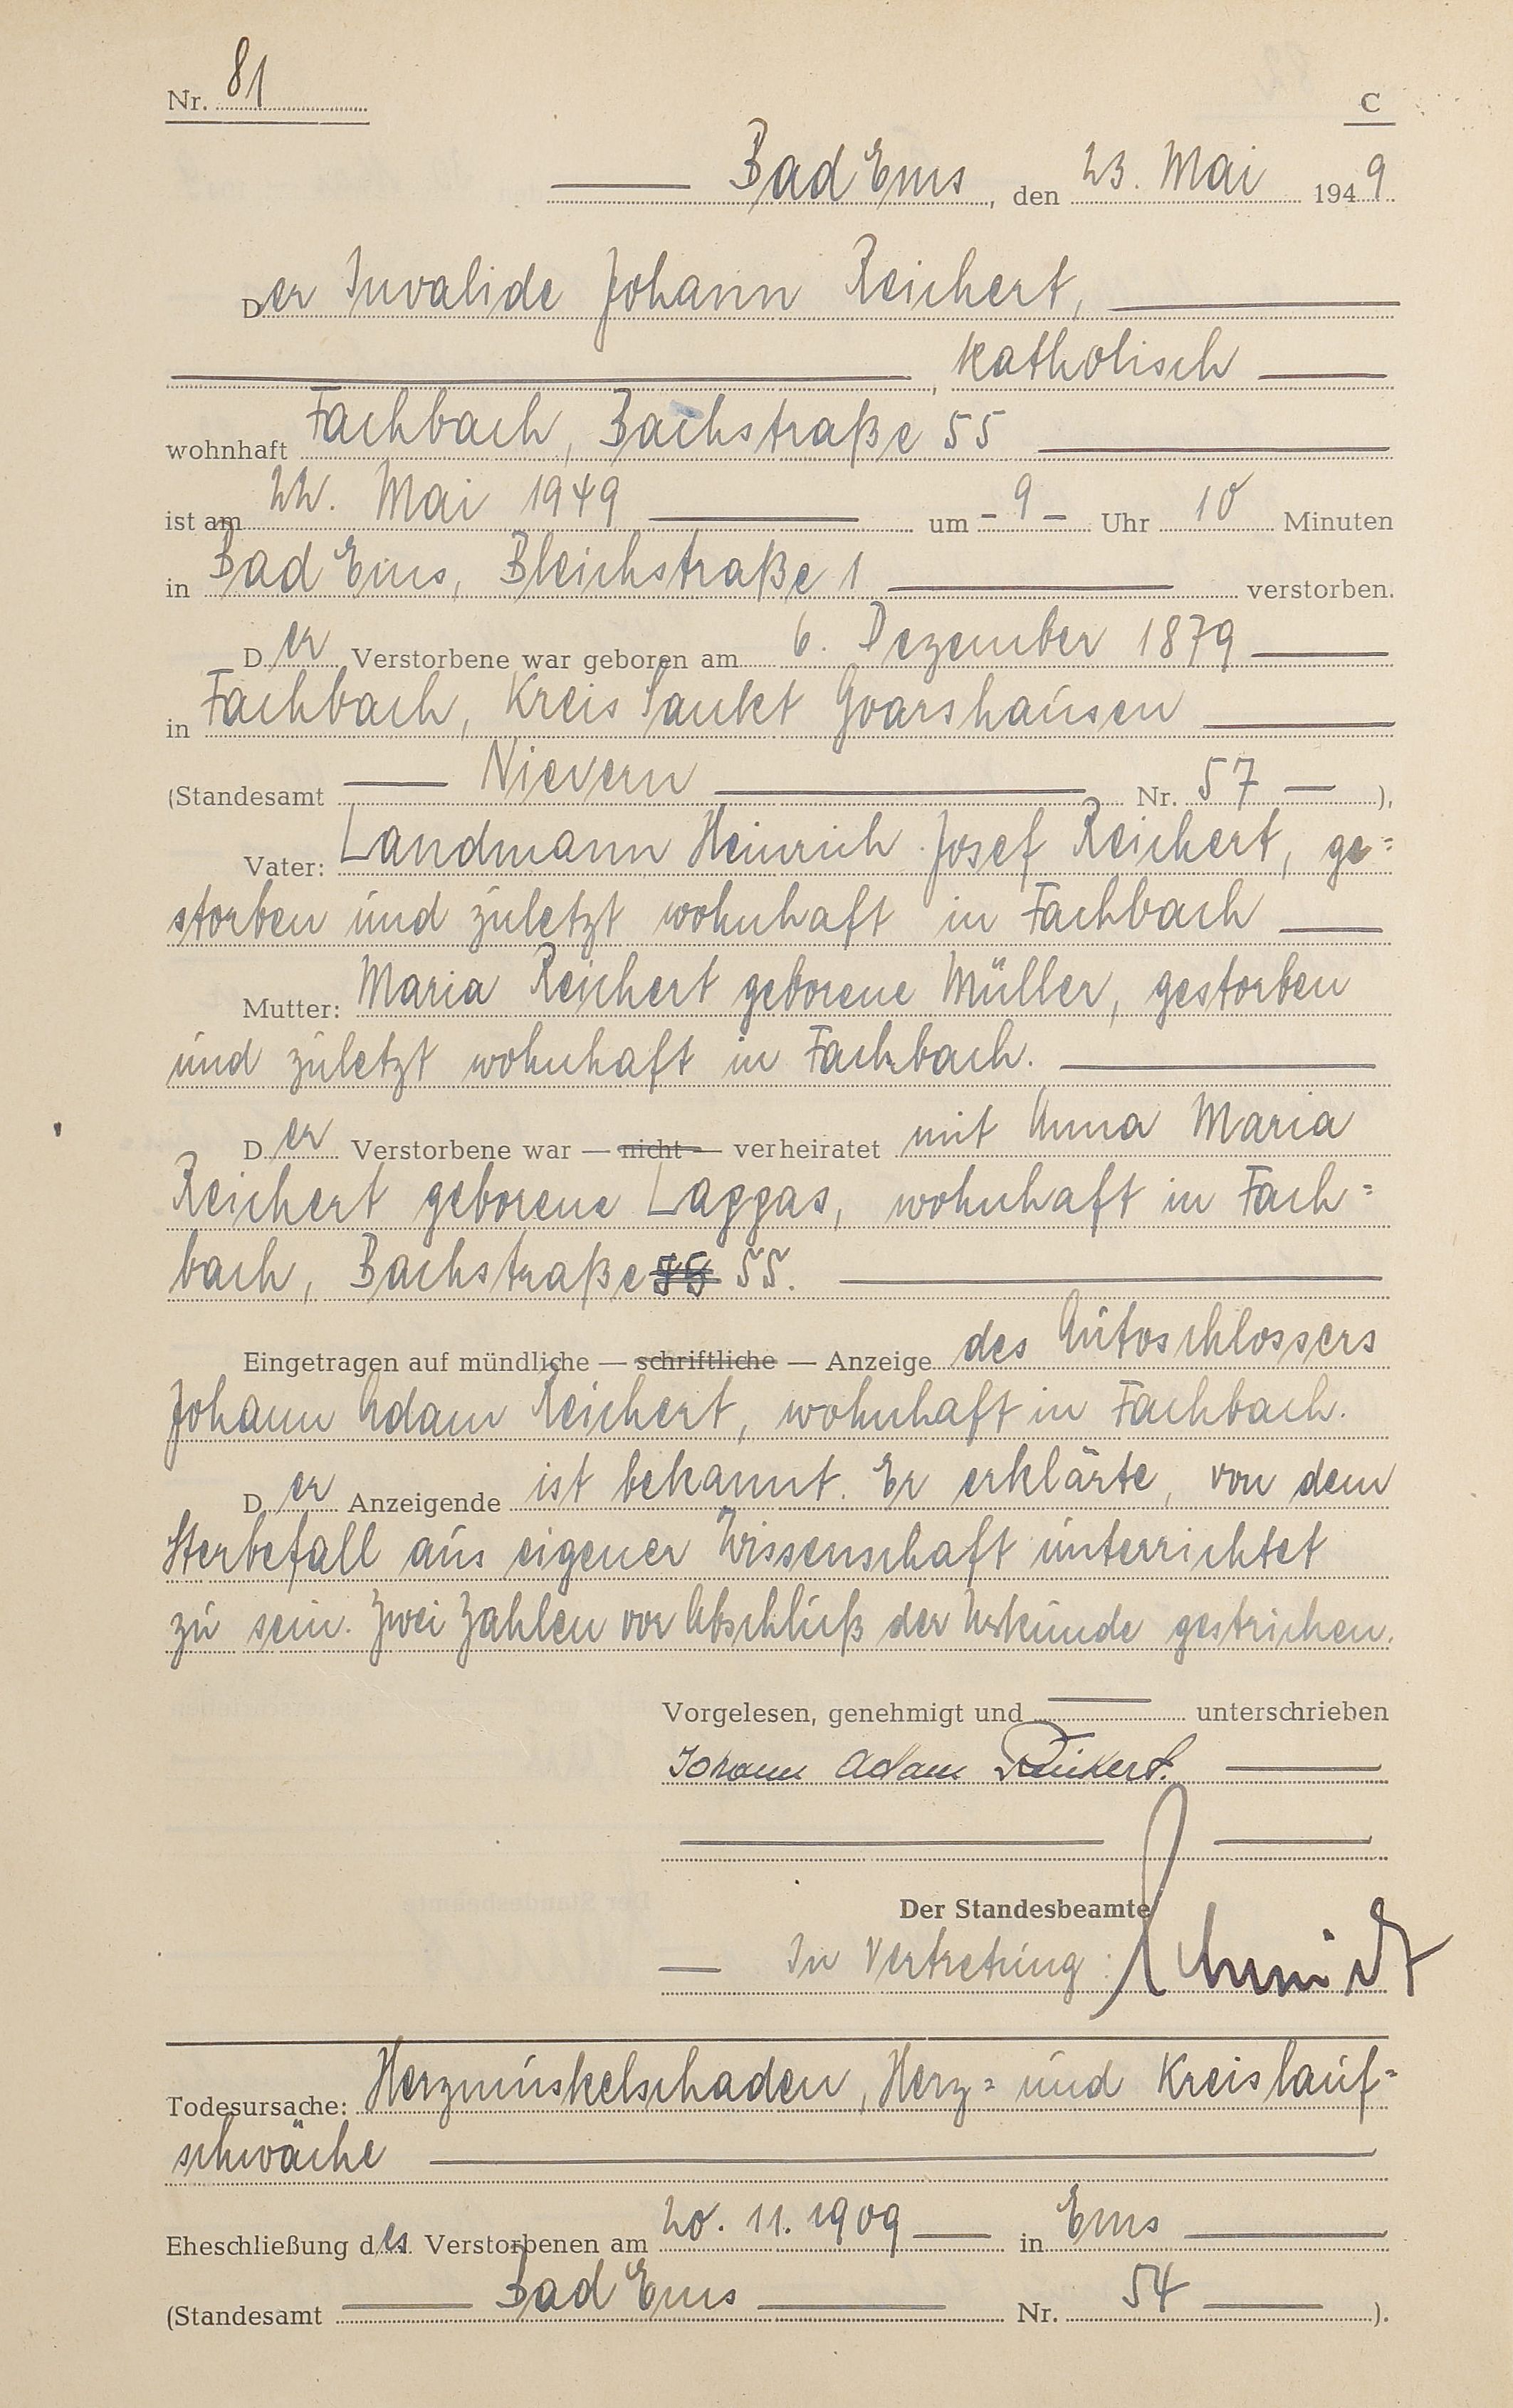 Nr. 81
C
Bad Ems, den 23. Mai 1949
Der Invalide Johann Reichert,
, katholisch
wohnhaft Fachbach, Bachstraße 55
ist am 22. Mai 1949 um - 9 - Uhr 10 Minuten
in Bad Ems, Bleichstraße 1 verstorben.
Der Verstorbene war geboren am 6. Dezember 1879
in Fachbach, Kreis Sankt Goarshausen
(Standesamt Nievern Nr. 57 ),
Vater: Landmann Heinrich Josef Reichert, ge=
storben und zuletzt wohnhaft in Fachbach
Mutter: Maria Reichert geborene Müller, gestorben
und zuletzt wohnhaft in Fachbach.
Der Verstorbene war — nicht — verheiratet mit Anna Maria
Reichert geborene Laggas, wohnhaft in Fach=
bach, Bachstraße 55.
Eingetragen auf mündliche — schriftliche — Anzeige des Autoschlossers
Johann Adam Reichert, wohnhaft in Fachbach.
Der Anzeigende ist bekannt. Er erklärte, von dem
Sterbefall aus eigener Wissenschaft unterrichtet
zu sein. Zwei Zahlen vor Abschluß der Urkunde gestrichen.
Vorgelesen, genehmigt und unterschrieben
Johann Adam Reichert.
Der Standesbeamte
In Vertretung: Schmidt
Todesursache: Herzmuskelschaden, Herz= und Kreislauf=
schwäche
Eheschließung des Verstorbenen am 20. 11. 1909 in Ems
(Standesamt Bad Ems Nr. 54 ).